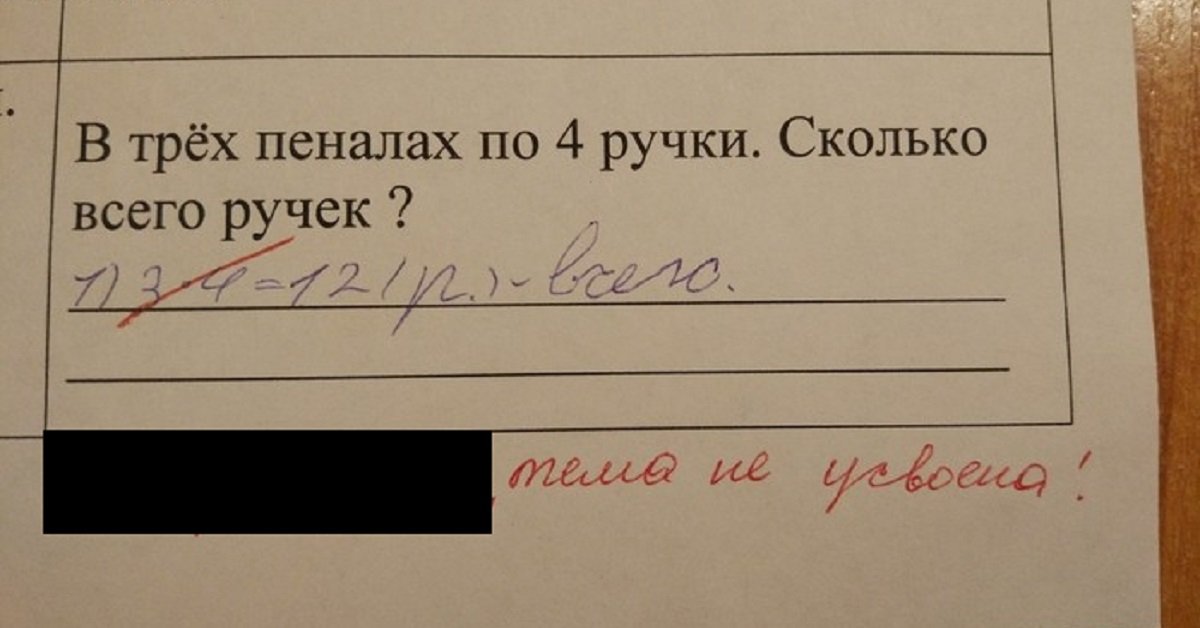 В трёх пеналах по 4 ручки. Сколько
всего ручек ?
1) 3·4=12 (р.) - всего.
, тема не усвоена!